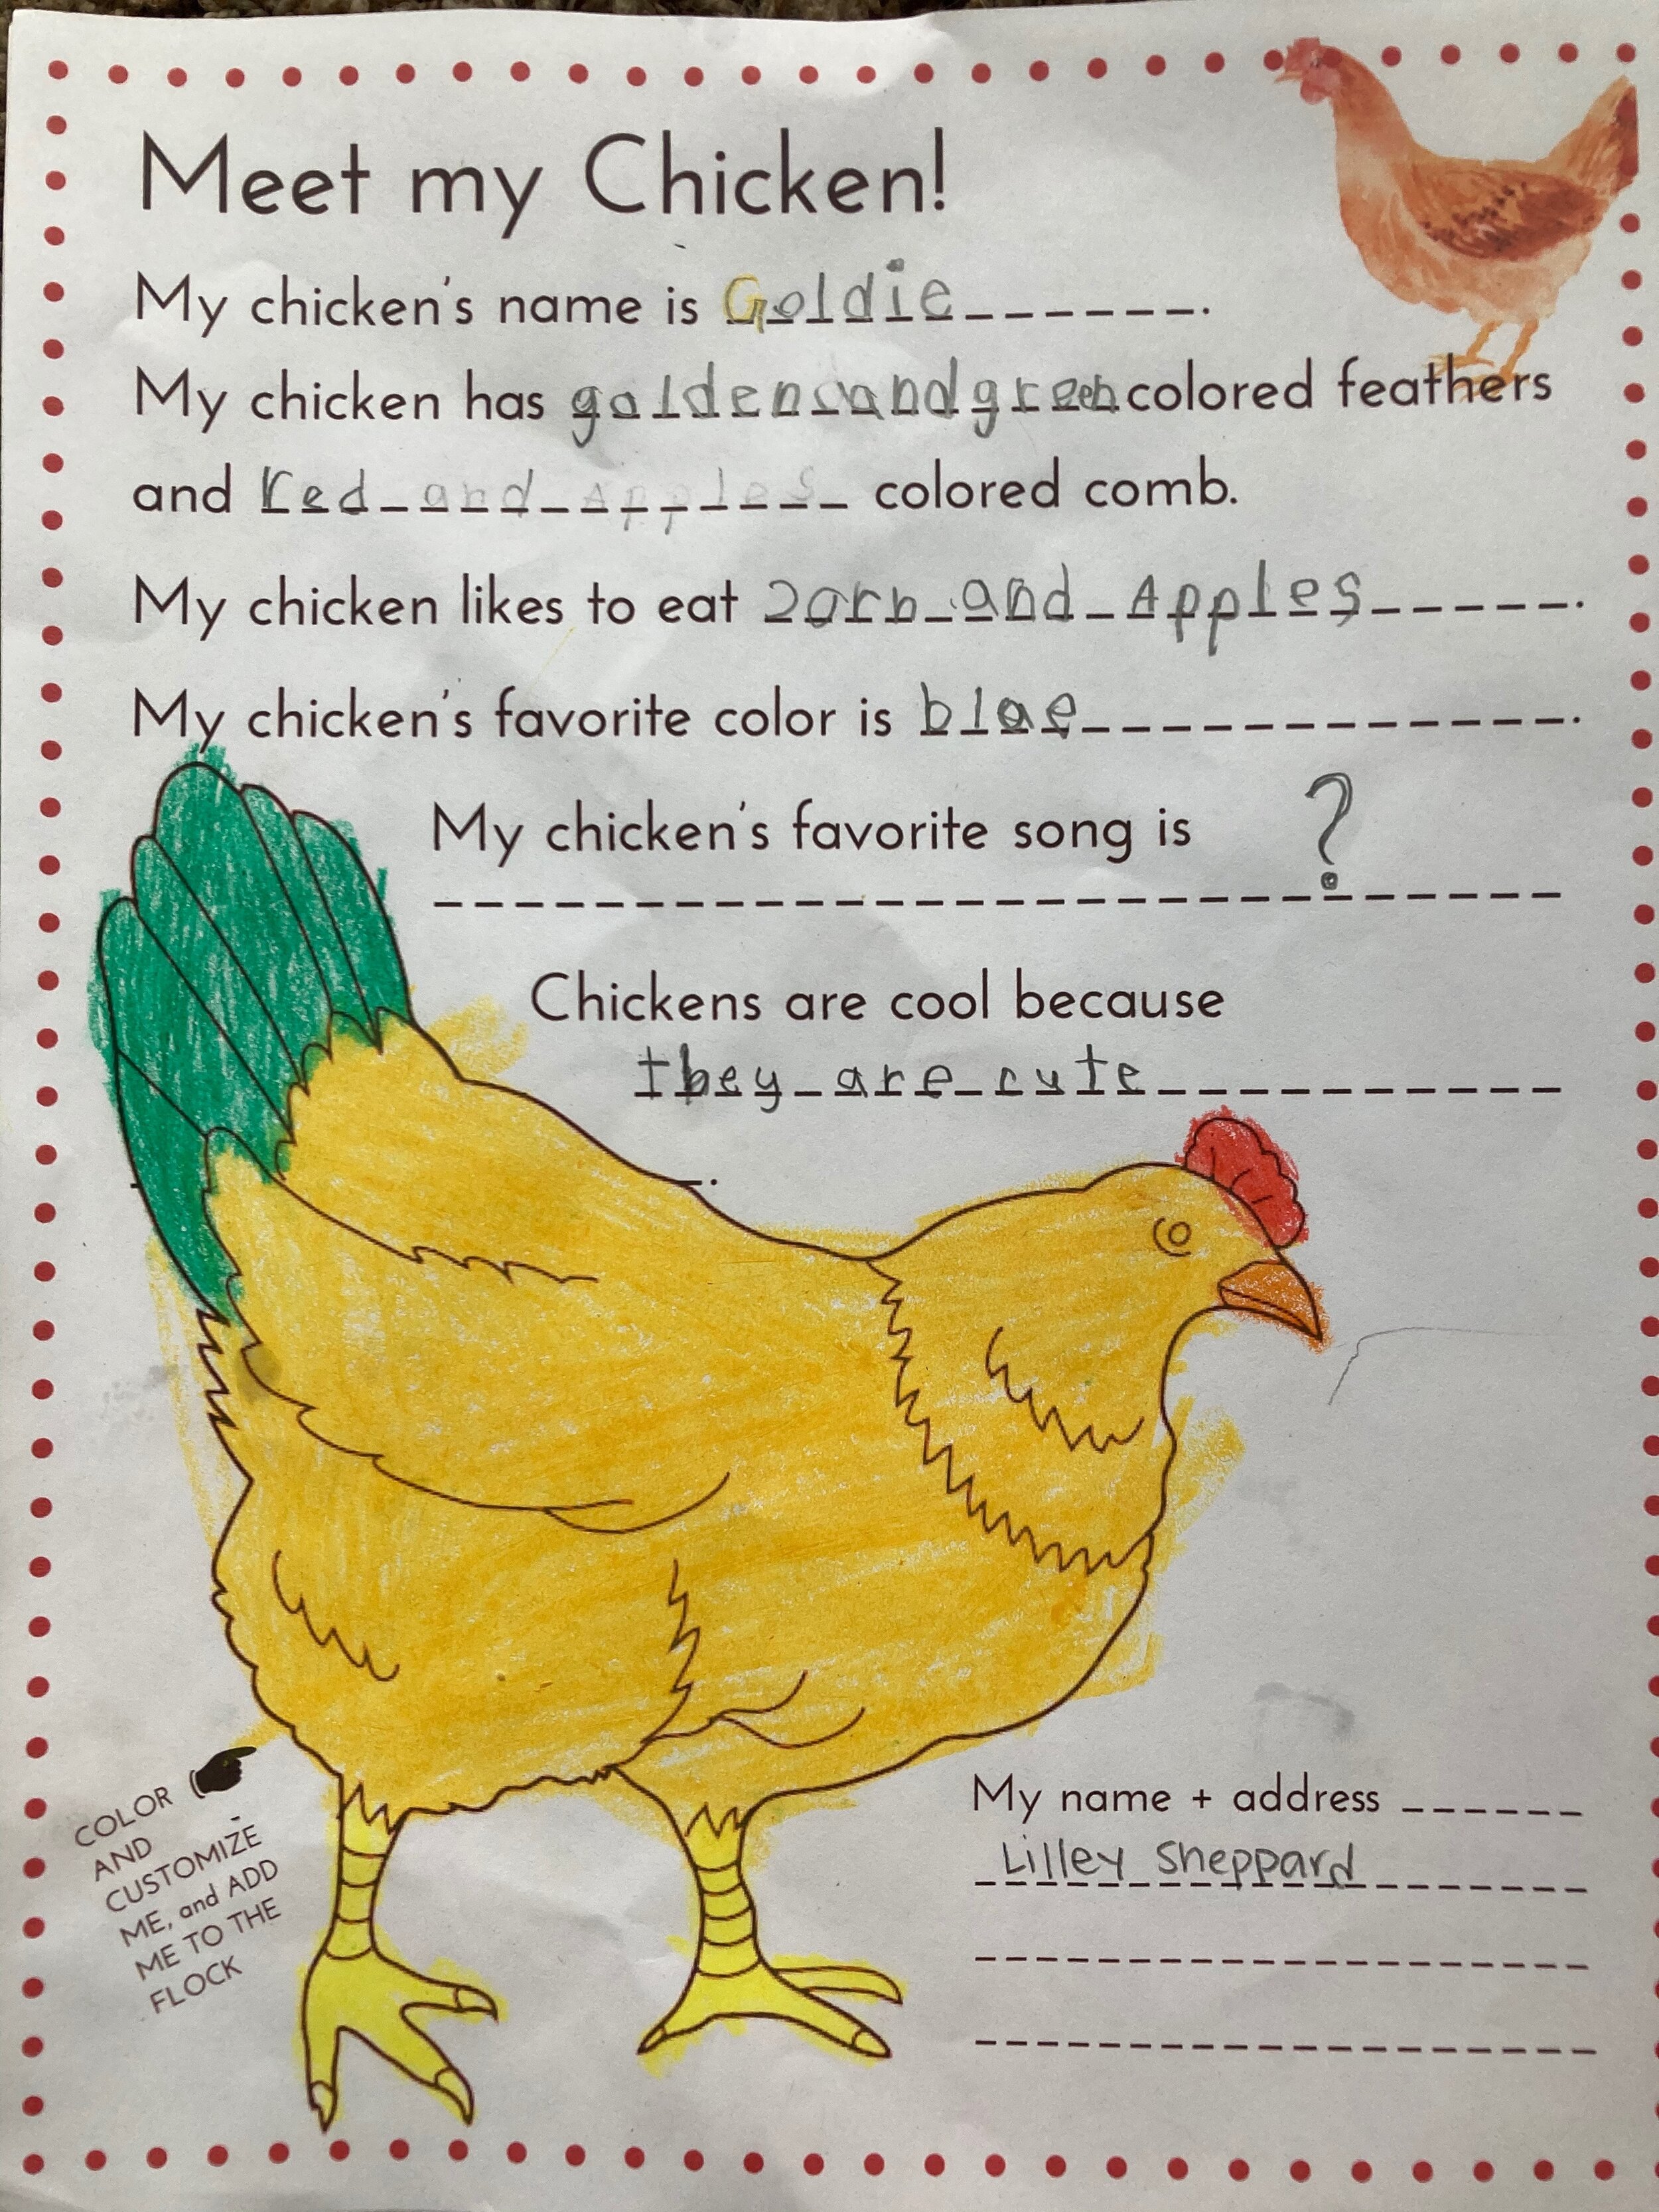 Meet my Chicken!
My chicken's name is Goldie.
My chicken has golden and green colored feathers
and red and Apples colored comb.
My chicken likes to eat 2orn and Apples.
My chicken's favorite color is blae.
My chicken's favorite song is ?
Chickens are cool because
they are cute
.
COLOR
AND
CUSTOMIZE
ME, and ADD
ME TO THE
FLOCK
My name + address
Lilley Sheppard